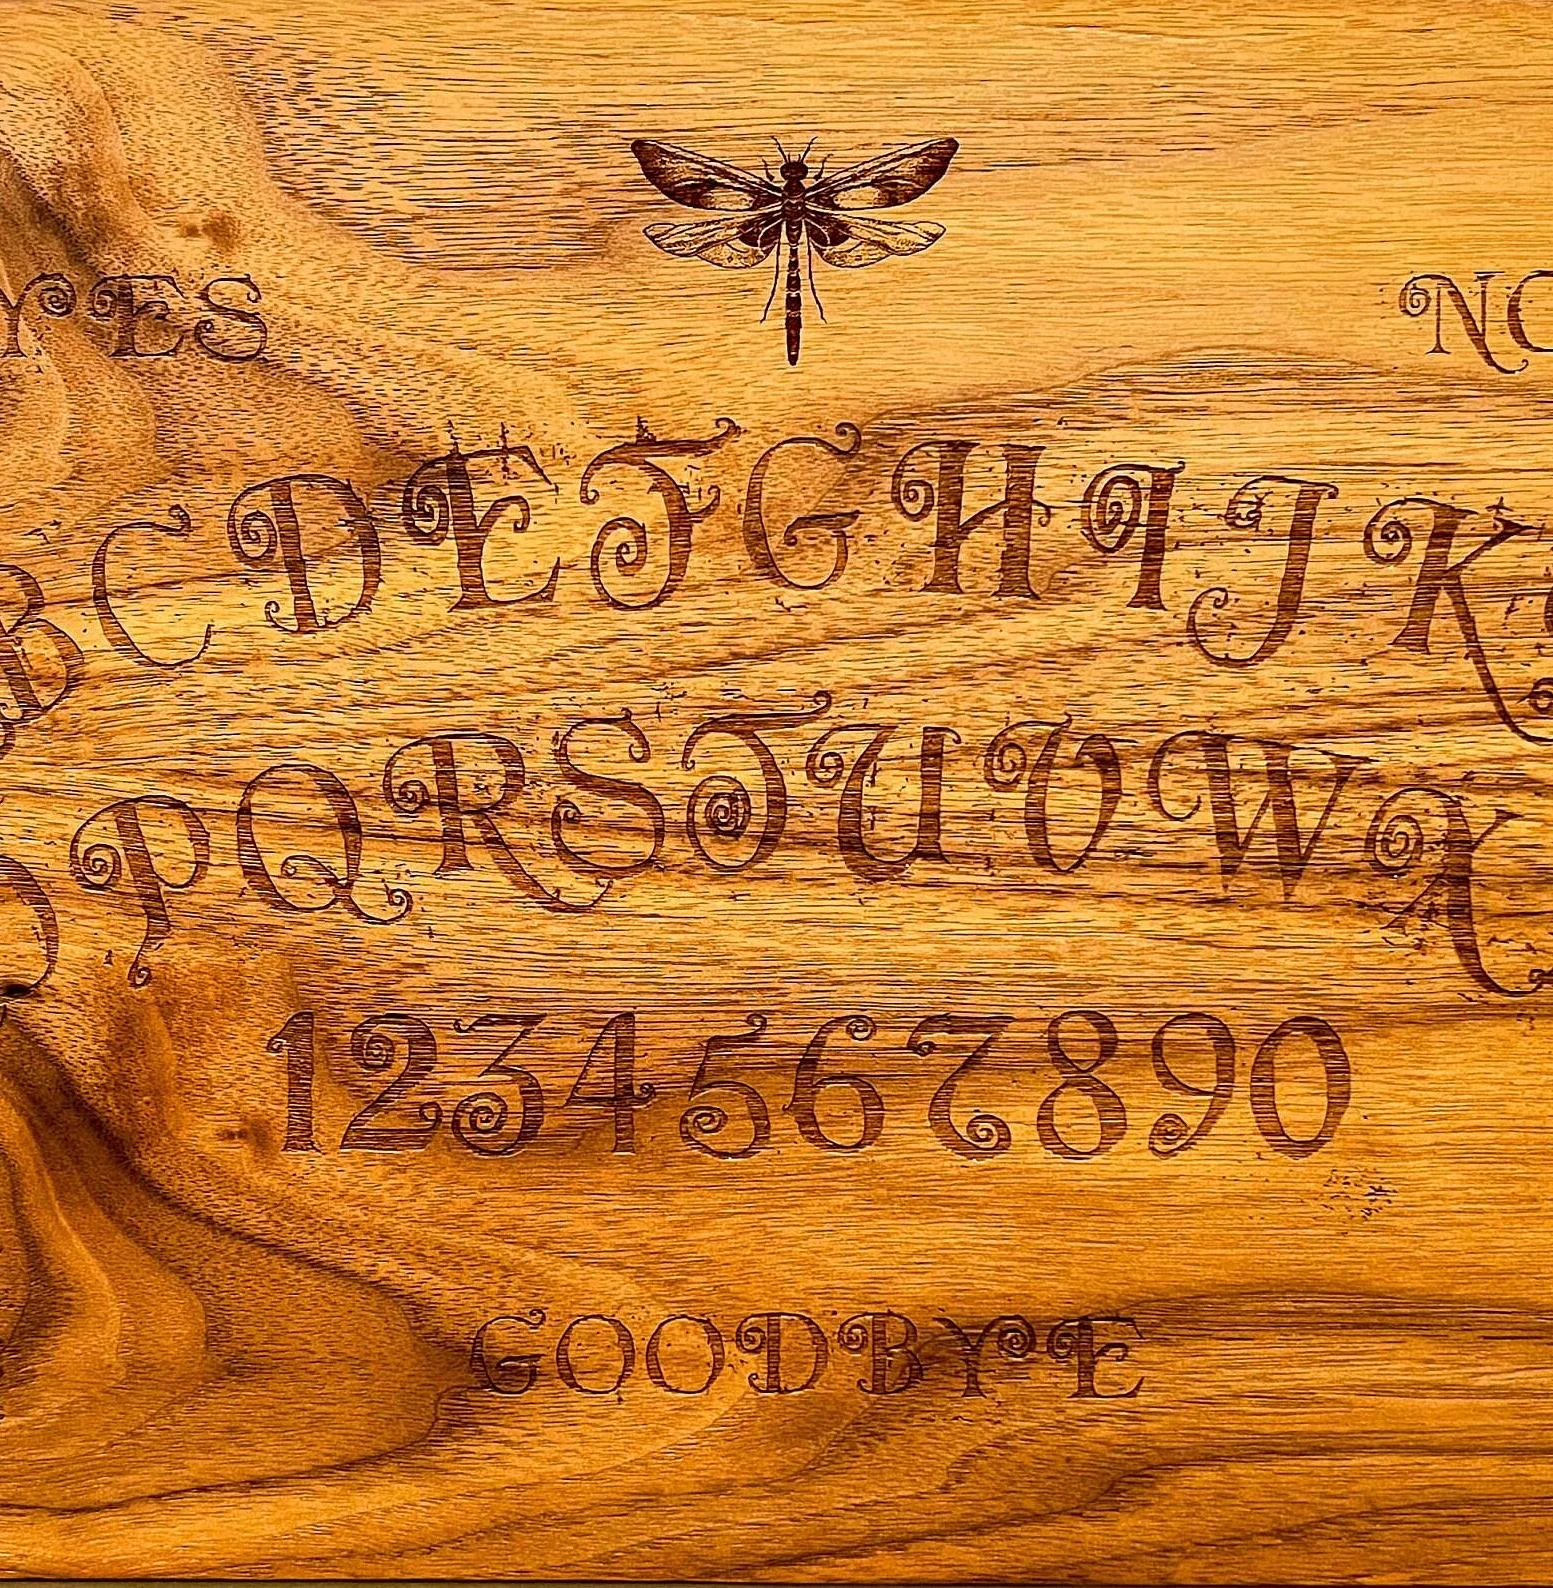 YES NO
BCDEFGHIJK
OPQRSTUVWX
1234567890
GOODBYE